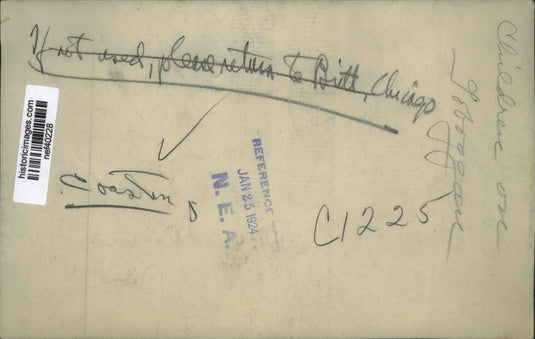 If not used, please return to Britt, Chicago
historicimages.com
nef40228
Coasting
REFERENCE
JAN 25 1924
N. E. A.
C1225
Children on
Toboggan